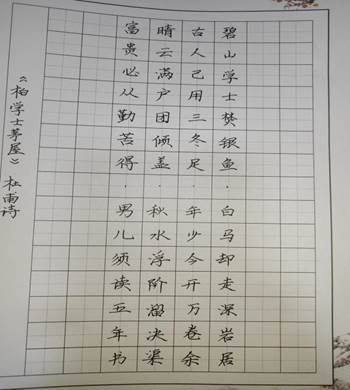 碧山学士焚银鱼·白马却走深岩居
古人己用三冬足·年少今开万卷余
晴云满户团倾盖·秋水浮阶溜决渠
富贵必从勤苦得·男儿须读五年书
《柏学士茅屋》杜甫诗